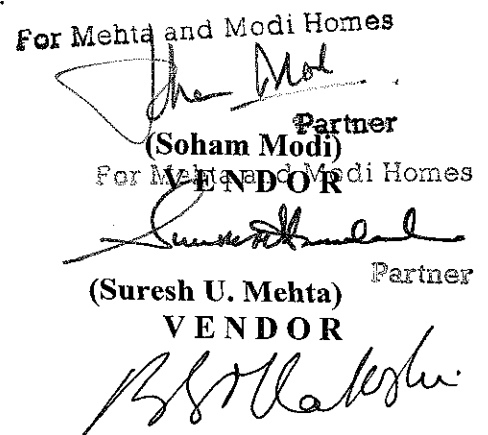 For Mehta and Modi Homes
Partner
(Soham Modi)
VENDOR
For Mehta and Modi Homes
Partner
(Suresh U. Mehta)
VENDOR